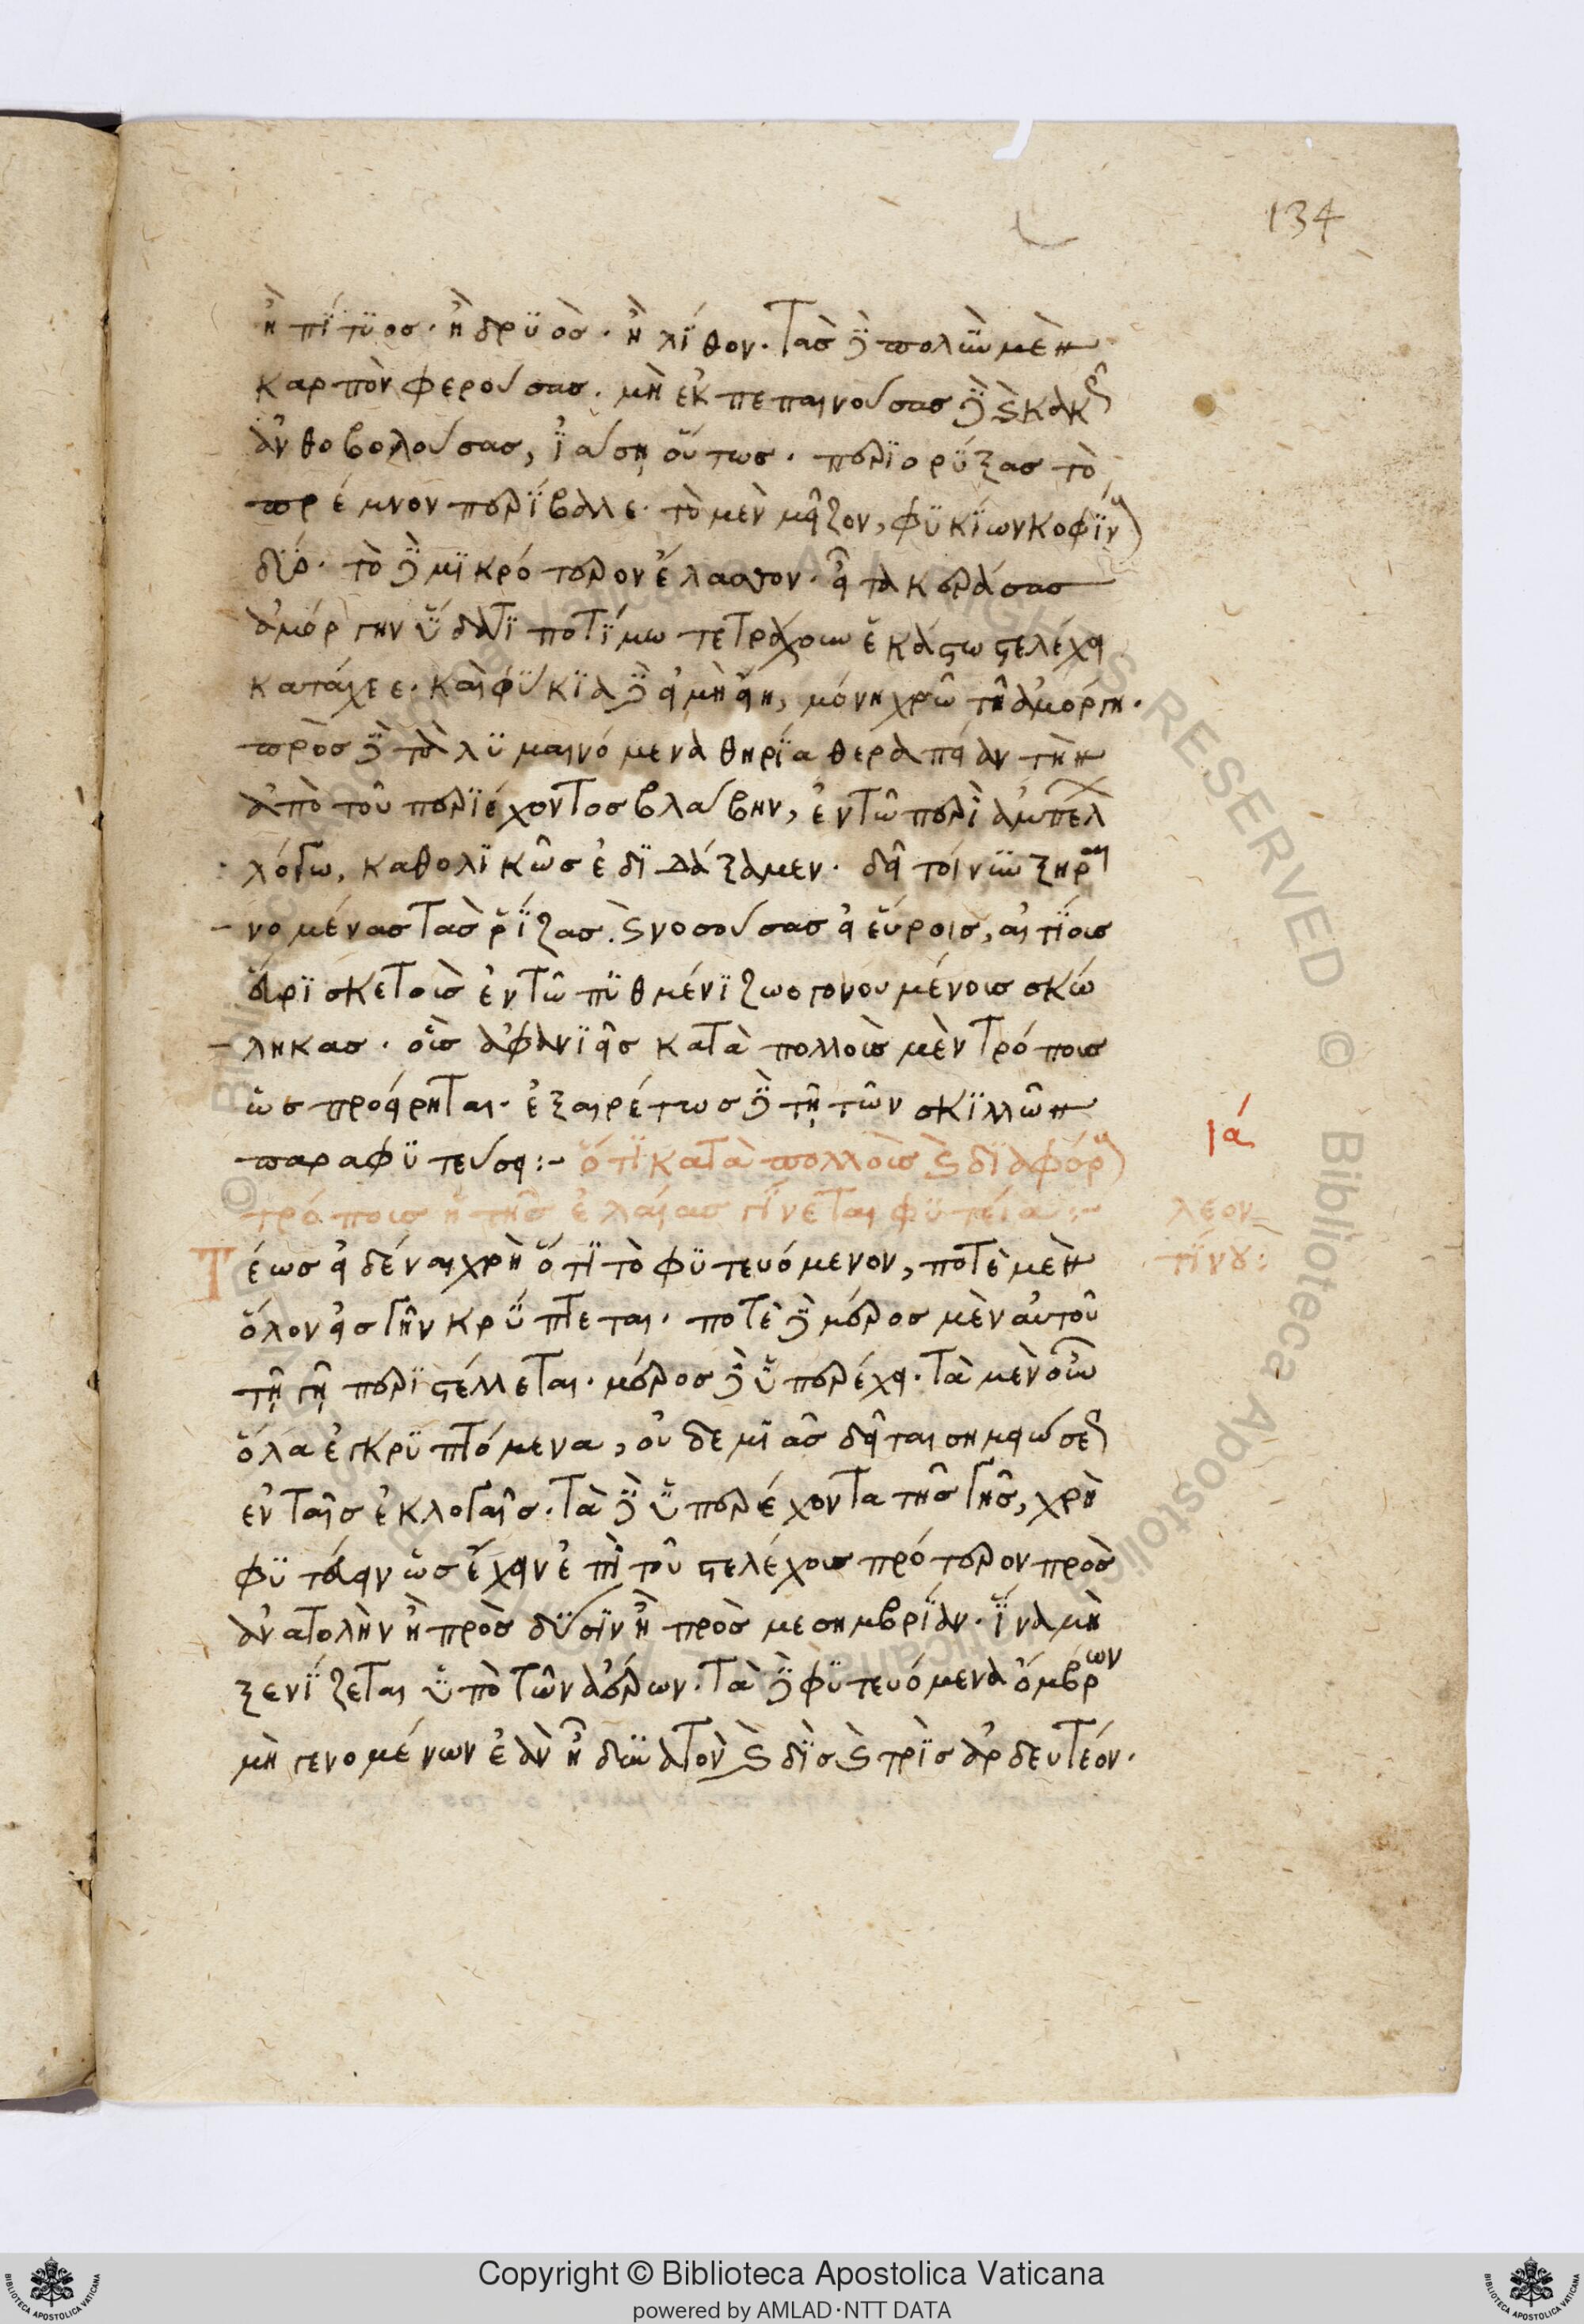 134
ἢ πίτυος· ἢ δρυὸς· ἢ λίθον. Τὰς δὲ πολὺν μὲν
καρπὸν φερούσας· μὴ ἐκπεπαινούσας δὲ καὶ κακῶς
ἀνθοβολούσας, ἰάση οὕτως· περιορύξας τὸ
πρέμνον περίβαλλε· τὸ μὲν μεῖζον, φυκίων κοφίνους
δύο· τὸ δὲ μικρότερον ἔλασσον· εἶτα κεράσας
ἀμόργην ὕδατι ποτίμω τετράχουν ἑκάστω στελέχει
κατάχεε· καὶ φυκία δὲ εἰ μὴ εἴη, μόνη χρῶ τῆ ἀμόργη·
πρὸς δὲ τὰ λυμαινόμενα θηρία θεραπείαν τὴν
ἀπὸ τοῦ περιέχοντος βλάβην, ἐν τῶ περὶ ἀμπέλων
λόγω, καθολικῶς ἐδιδάξαμεν· δεῖ τοίνυν ξηραι
νομένας τὰς ῥίζας· καὶ νοσούσας εἰ εὕροις, αἰτίοις
εὑρίσκε τοῖς ἐν τῶ πυθμένι ζωογονουμένοις σκώ
ληκας· οἷς ἀφανιεῖς κατὰ πολλοὺς μὲν τρόπους
ὡς προείρηται· ἐξαιρέτως δὲ τῆ τῶν σκιλλῶν
παραφυτεύσει:- ὅτι κατὰ πολλοὺς καὶ διαφόρους
τρόπους ἡ τῆς ἐλαίας γίνεται φυτεία:-
ια
λεον
τίνου:
Τέως εἰδέναι χρὴ ὅτι τὸ φυτευόμενον, ποτὲ μὲν
ὅλον εἰς γῆν κρύπτεται· ποτὲ δὲ μέρος μὲν αὐτοῦ
τῆ γῆ περιστέλλεται· μέρος δὲ ὑπερέχει. Τὰ μὲν οὖν
ὅλα ἐγκρυπτόμενα, οὐδεμιᾶς δεῖται σημειώσεως
ἐν ταῖς ἐκλογαῖς. Τὰ δὲ ὑπερέχοντα τῆς γῆς, χρὴ
φυτεύειν ὡς ἔχειν ἐπὶ τοῦ στελέχους πρότερον πρὸς
ἀνατολὴν ἢ πρὸς δύσιν ἢ πρὸς μεσημβρίαν· ἵνα μὴ
ξενίζεται ὑπὸ τῶν ἀέρων. Τὰ δὲ φυτευόμενα ὄμβρων
μὴ γενομένων ἐὰν ἦ δυνατὸν καὶ δὶς καὶ τρὶς ἀρδευτέον.
Copyright © Biblioteca Apostolica Vaticana
powered by AMLAD·NTT DATA